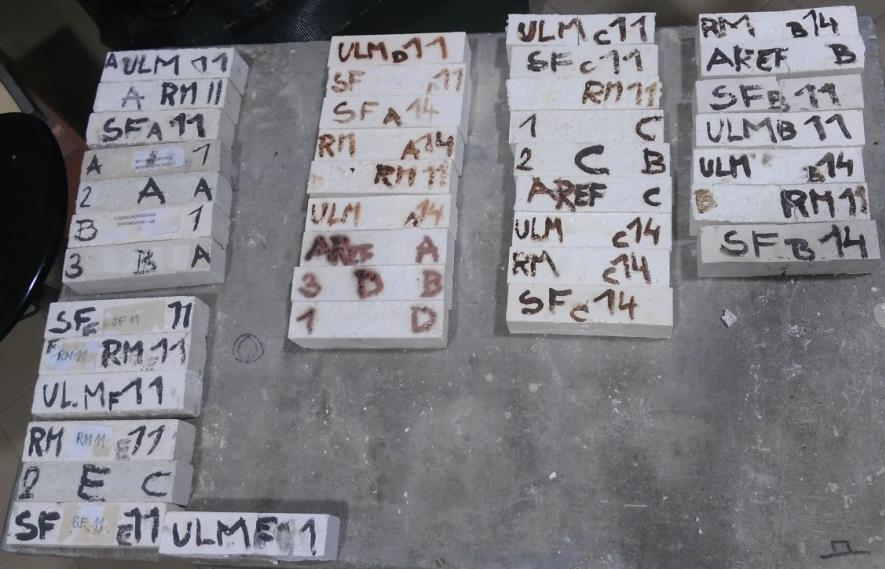 A ULM 11
A RM 11
SF A 11
A 1
2 A A
B 1
3 B A
SF E SF 11 11
F RM 11 RM 11
ULM F 11
RM RM 11 E 11
E C
SF SF 11 E 11
ULM E 11
ULM D 11
SF 11
SF A 14
RM A 14
RM 11
ULM A 14
AREF A
3 B B
1 D
ULM C 11
SF C 11
RM 11
1 C
2 C B
AREF C
ULM C 14
RM C 14
SF C 14
RM B 14
AREF B
SF B 11
ULM B 11
ULM B 14
B RM 11
SF B 14